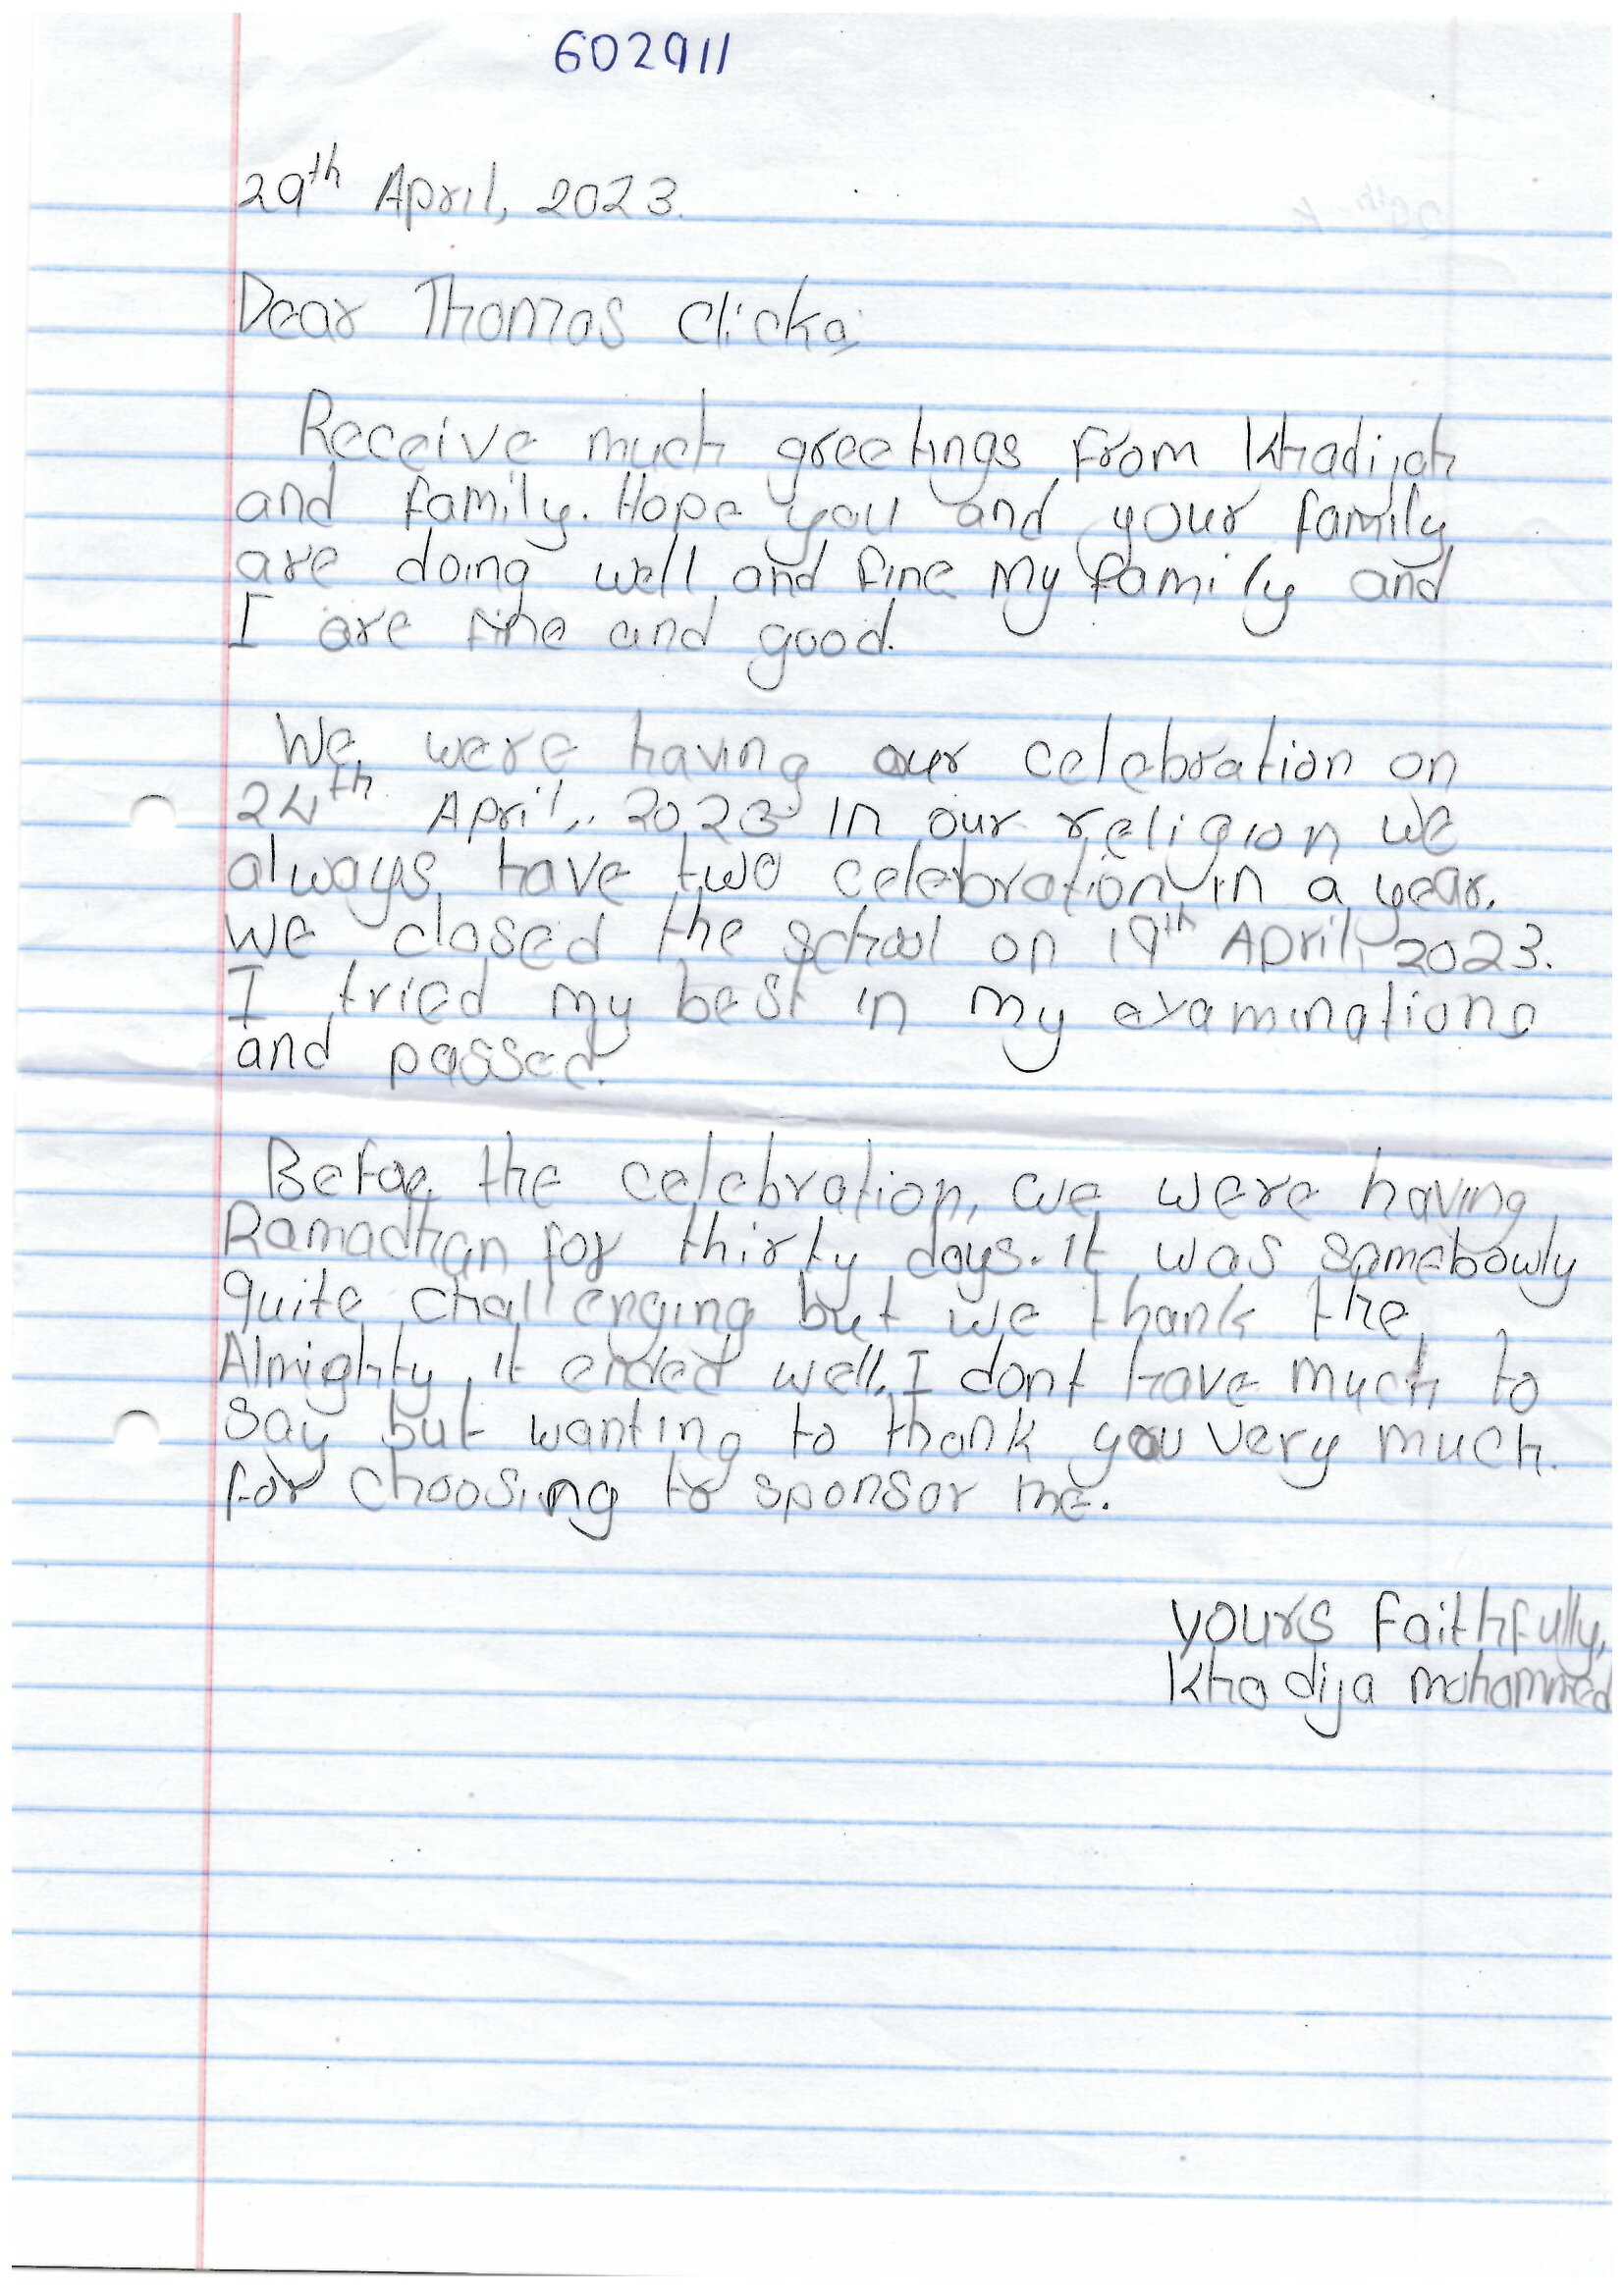 602911
29th April, 2023.
Dear Thomas Clicka,
Receive much greetings from Khadijah
and family. Hope you and your family
are doing well and fine My family and
I are fine and good.
We were having our celebration on
24th April, 2023 In our religion we
always have two celebration in a year.
We closed the school on 19th April, 2023.
I tried my best in my examinations
and passed.
Before the celebration, we were having
Ramadhan for thirty days. It was somehowly
quite challenging but we thank the
Almighty it ended well. I dont have much to
say but wanting to thank you very much.
for choosing to sponsor me.
yours Faithfully,
Khadija mohammed